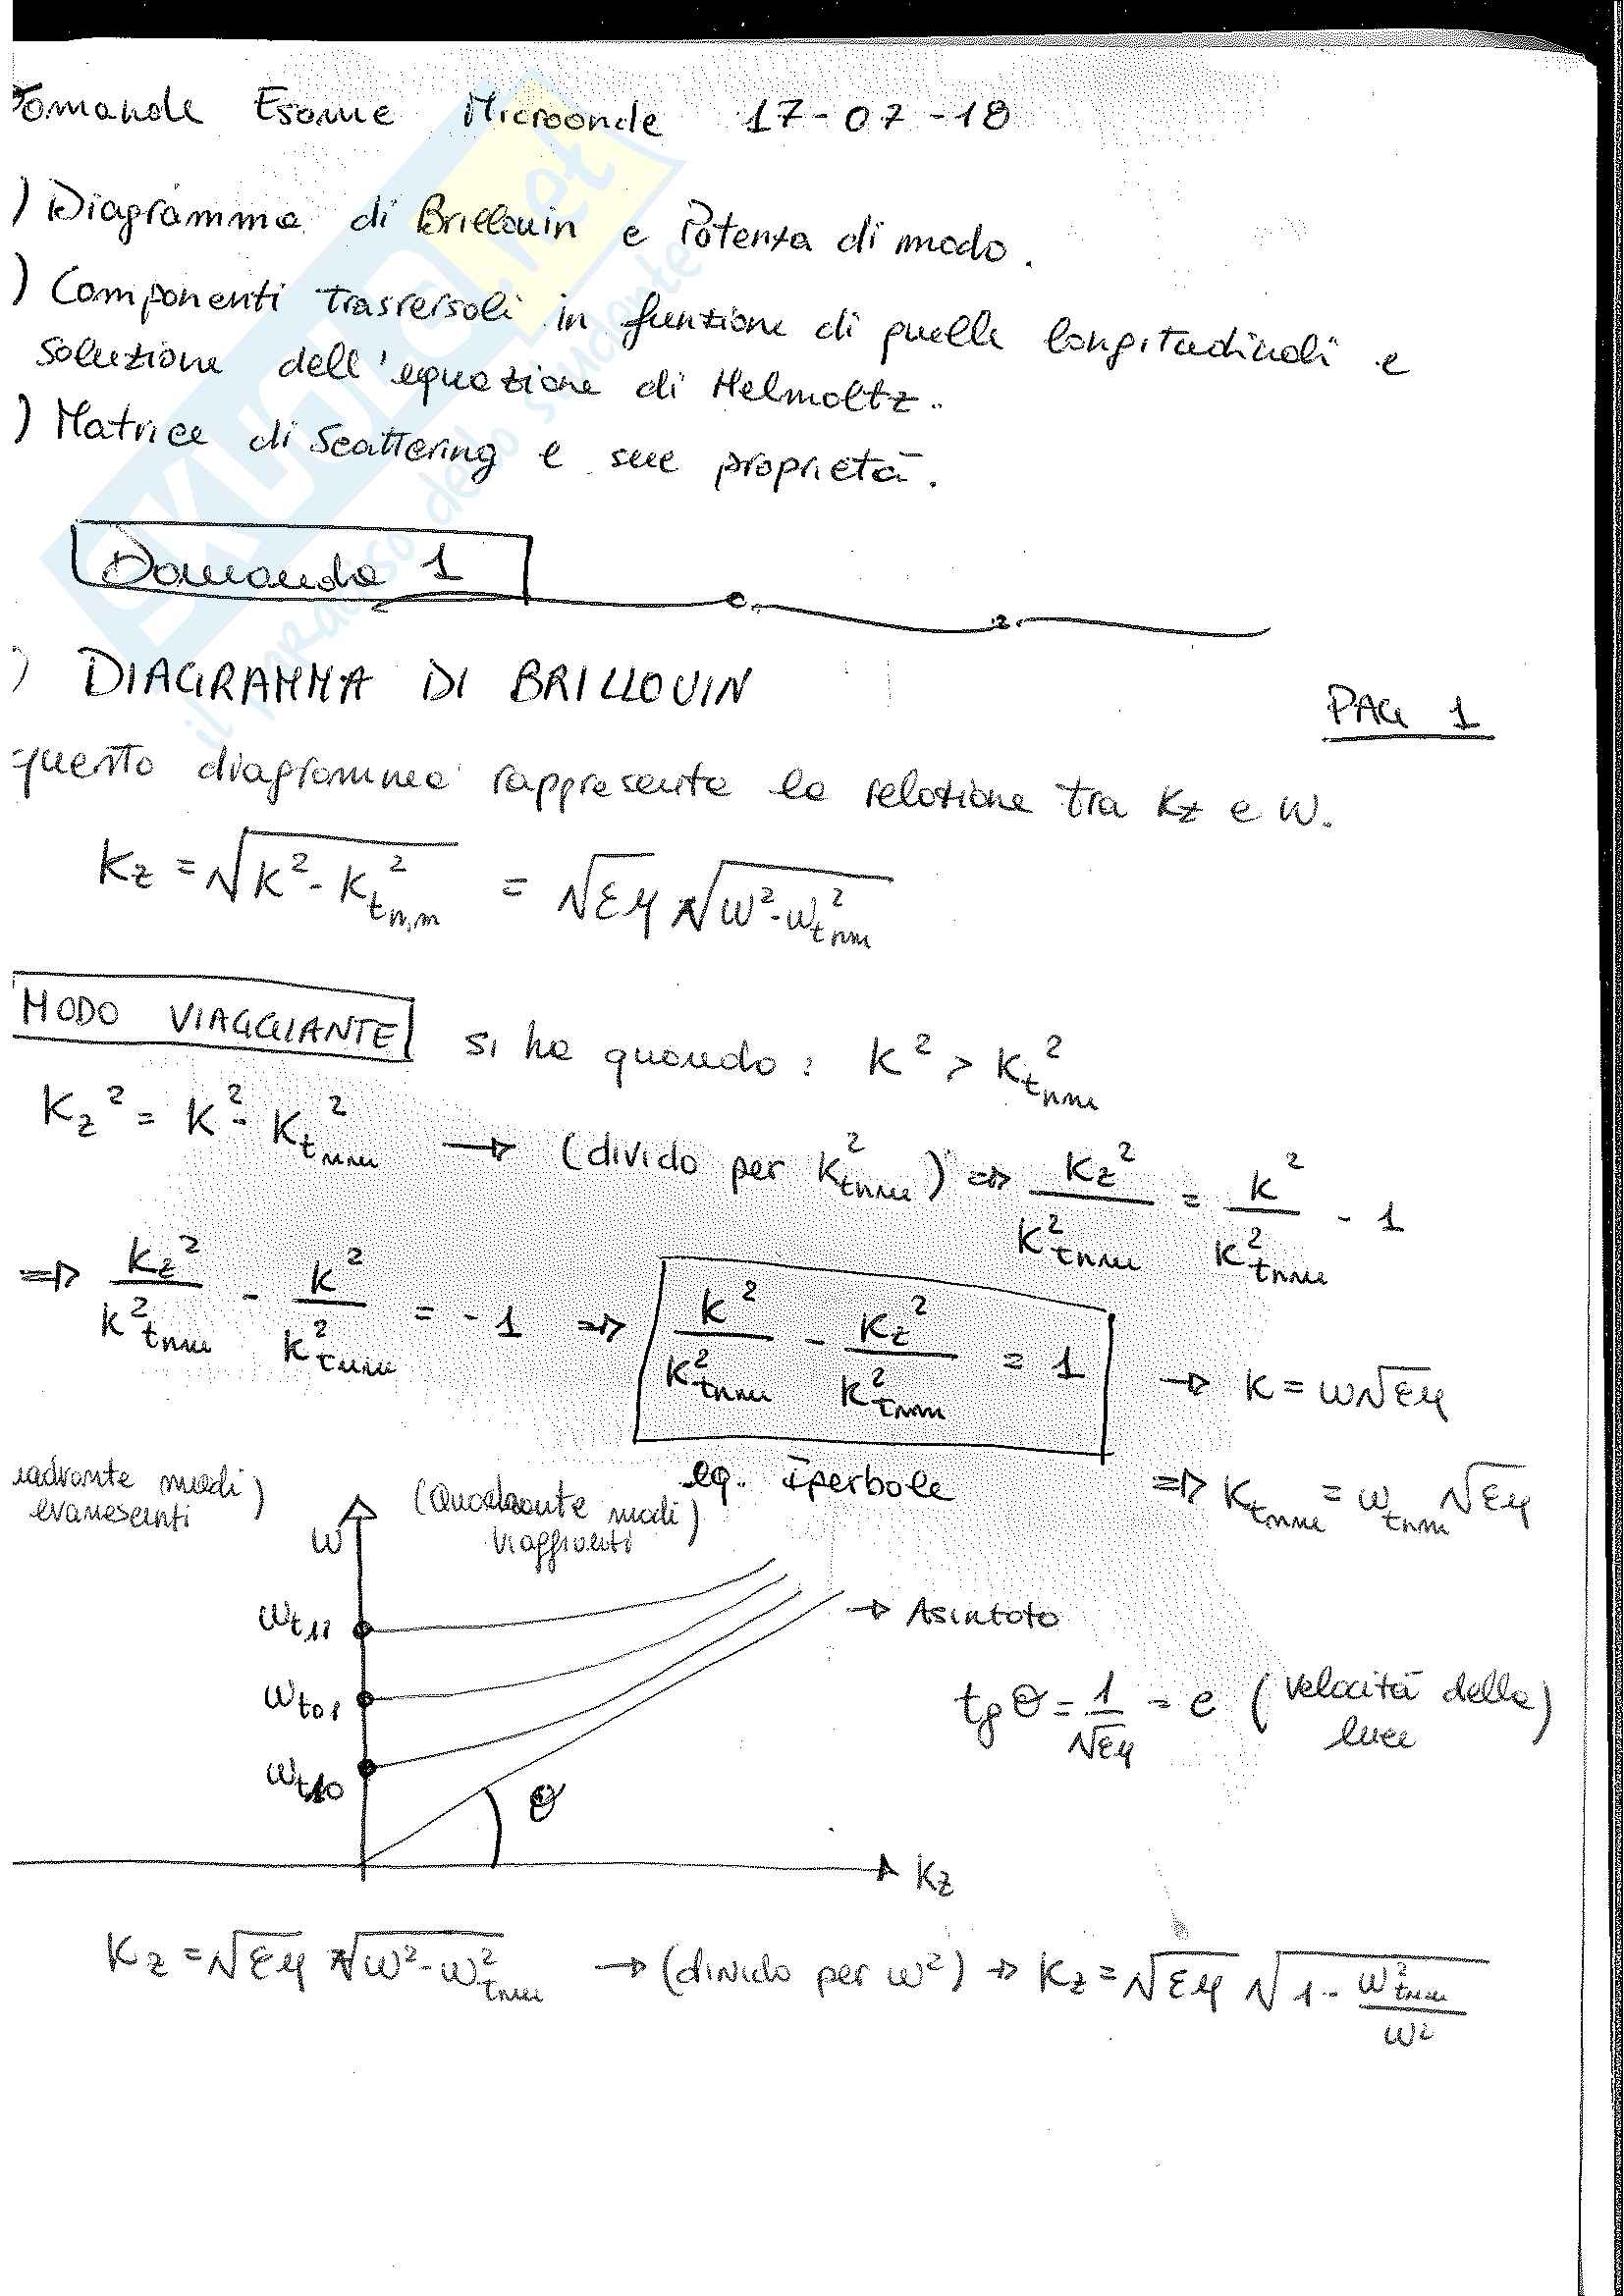 Domande Esame Microonde 17-07-18
) Diagramma di Brillouin e Potenza di modo.
) Componenti trasversali in funzione di quelle longitudinali e
soluzione dell'equazione di Helmoltz.
) Matrice di Scattering e sue proprietà.
Domanda 1
) DIAGRAMMA DI BRILLOUIN
PAG 1
questo diagramma rappresenta la relazione tra Kz e ω.
Kz = √(K² - K²tn,m) = √εμ √(ω² - ω²tnm)
MODO VIAGGIANTE si ha quando: K² > K²tnm
Kz² = K² - K²tnm → (divido per K²tnm) ⇒ Kz²/K²tnm = K²/K²tnm - 1
⇒ Kz²/K²tnm - K²/K²tnm = -1 ⇒ K²/K²tnm - Kz²/K²tnm = 1 → K = ω√εμ
eq. iperbole ⇒ Ktnm = ωtnm √εμ
uadrante modi evanescenti)
(Quadrante modi viaggianti)
ω
ωt11
→ Asintoto
ωt01
tgθ = 1/√εμ = c (velocità della luce)
ωt10
θ
Kz
Kz = √εμ √(ω² - ω²tnm) → (divido per ω²) → Kz = √εμ √(1 - ω²tnm/ω²)
SKUOLA.net
il paradiso dello studente